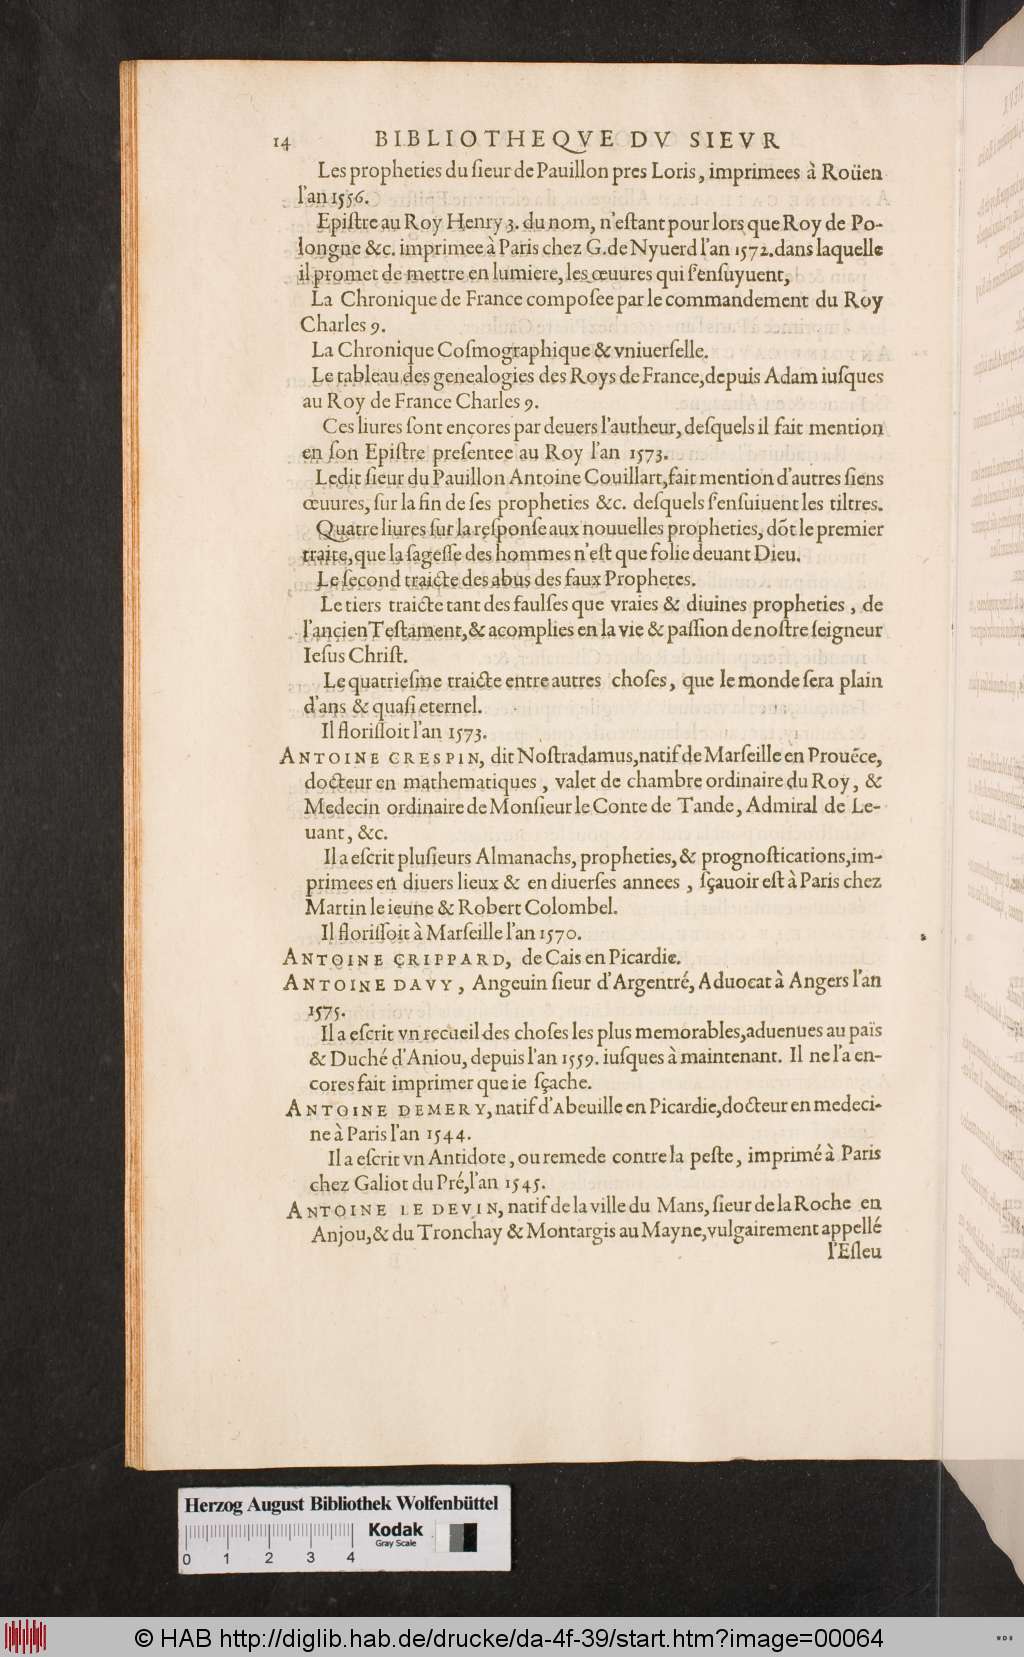 14 BIBLIOTHEQVE DV SIEVR
Les propheties du ſieur de Pauillon pres Loris, imprimees à Roüen
l'an 1556.
Epiſtre au Roy Henry 3. du nom, n'eſtant pour lors que Roy de Po-
longne &c. imprimee à Paris chez G. de Nyuerd l'an 1572. dans laquelle
il promet de mettre en lumiere, les œuures qui ſ'enſuyuent,
La Chronique de France compoſee par le commandement du Roy
Charles 9.
La Chronique Coſmographique & vniuerſelle.
Le tableau des genealogies des Roys de France, depuis Adam iuſques
au Roy de France Charles 9.
Ces liures ſont encores par deuers l'autheur, deſquels il fait mention
en ſon Epiſtre preſentee au Roy l'an 1573.
Ledit ſieur du Pauillon Antoine Couillart, fait mention d'autres ſiens
œuures, ſur la fin de ſes propheties &c. deſquels ſ'enſuiuent les tiltres.
Quatre liures ſur la reſponſe aux nouuelles propheties, dõt le premier
traite, que la ſageſſe des hommes n'eſt que folie deuant Dieu.
Le ſecond traicte des abus des faux Prophetes.
Le tiers traicte tant des faulſes que vraies & diuines propheties, de
l'ancien Teſtament, & acomplies en la vie & paſſion de noſtre ſeigneur
Ieſus Chriſt.
Le quatrieſme traicte entre autres choſes, que le monde ſera plain
d'ans & quaſi eternel.
Il floriſſoit l'an 1573.
ANTOINE CRESPIN, dit Noſtradamus, natif de Marſeille en Prouẽce,
docteur en mathematiques, valet de chambre ordinaire du Roy, &
Medecin ordinaire de Monſieur le Conte de Tande, Admiral de Le-
uant, &c.
Il a eſcrit pluſieurs Almanachs, propheties, & prognoſtications, im-
primees en diuers lieux & en diuerſes annees, ſçauoir eſt à Paris chez
Martin le ieune & Robert Colombel.
Il floriſſoit à Marſeille l'an 1570.
ANTOINE CRIPPARD, de Cais en Picardie.
ANTOINE DAVY, Angeuin ſieur d'Argentré, Aduocat à Angers l'an
1575.
Il a eſcrit vn recueil des choſes les plus memorables, aduenues au païs
& Duché d'Aniou, depuis l'an 1559. iuſques à maintenant. Il ne l'a en-
cores fait imprimer que ie ſçache.
ANTOINE DEMERY, natif d'Abeuille en Picardie, docteur en medeci-
ne à Paris l'an 1544.
Il a eſcrit vn Antidote, ou remede contre la peſte, imprimé à Paris
chez Galiot du Pré, l'an 1545.
ANTOINE LE DEVIN, natif de la ville du Mans, ſieur de la Roche en
Anjou, & du Tronchay & Montargis au Mayne, vulgairement appellé
l'Eſleu
Herzog August Bibliothek Wolfenbüttel
Kodak
Gray Scale
0 1 2 3 4
© HAB http://diglib.hab.de/drucke/da-4f-39/start.htm?image=00064